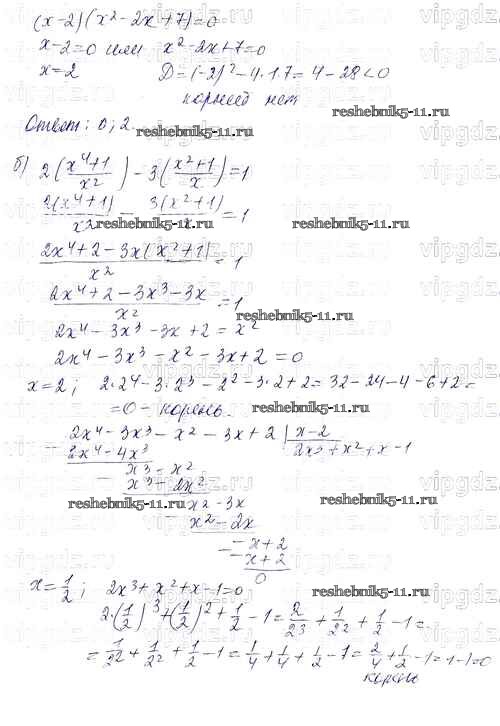 (x-2)(x²-2x+7)=0
x-2=0 или x²-2x+7=0
x=2 D=(-2)²-4·1·7=4-28<0
корней нет
Ответ: 0; 2.
reshebnik5-11.ru
reshebnik5-11.ru
б) 2(x⁴+1/x²) - 3(x²+1/x)=1
reshebnik5-11.ru
2(x⁴+1)/x² - 3(x²+1)/x =1
reshebnik5-11.ru
reshebnik5-11.ru
2x⁴+2-3x(x²+1)/x² = 1
2x⁴+2-3x³-3x/x² =1
reshebnik5-11.ru
2x⁴-3x³-3x+2=x²
2x⁴-3x³-x²-3x+2=0
x=2; 2·2⁴-3·2³-2²-3·2+2=32-24-4-6+2=
=0-корень.
reshebnik5-11.ru
2x⁴-3x³-x²-3x+2 | x-2
2x⁴-4x³ 2x³+x²+x-1
x³-x²
x³-2x²
reshebnik5-11.ru
x²-3x
reshebnik5-11.ru
x²-2x
-x+2
-x+2
0
x=1/2; 2x³+x²+x-1=0
reshebnik5-11.ru
2·(1/2)³+(1/2)²+1/2-1=2/2³+1/2²+1/2-1=
=1/2²+1/2²+1/2-1=1/4+1/4+1/2-1=2/4+1/2-1=1-1=0
корень